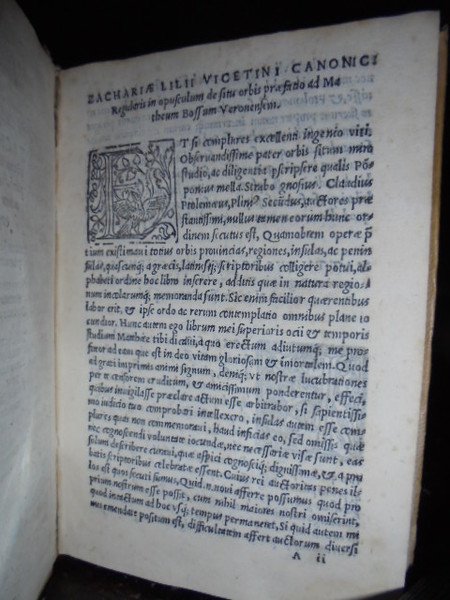 ZACHARIÆ LILII VICETINI CANONICI
Regularis in opusculum de situ orbis præfatio ad Ma
theum Bossum Veronensem.
T si complures excellenti ingenio viri
Obseruandissime pater orbis situm miro
studio, ac diligentia pscripsere qualis Põ
ponius mella. Strabo gnosius. Claudius
Ptolemæus, Plin⁹ Secũdus, auctores præ
stantissimi, nullus tamen eorum hunc or
dinem secutus est, Quamobrem operæ p
tium existimaui totius orbis prouincias, regiones, insulas, ac penin
sulas, quascunq; a græcis, latinisq; scriptoribus colligere potui, al
phabeti ordine hoc libro inserere, additis quæ in natura regio
num incolarumq; memoranda sunt. Sic enim facilior quærentibus
labor erit, & ipse ordo ac rerum contemplatio omnibus plane io
cundior. Hunc autem ego librum mei superioris ocii & temporis
studium Matthæe tibi dicaui, a quo erectum adiutumq; me pro
fiteor ad eam quæ est in deo vitam gloriosam & imortalem. Quod
grati imprimis animi signum, deniq; vt nostræ lucubrationes
per te censorem eruditum, & amicissimum ponderentur, effeci,
quibus inuigilasse præclare actum esse arbitrabor, si sapientissi
mo iudicio tuo comprobari intellexero, insulas autem esse com
plures quas non commemoraui, haud inficias eo, sed omissis quæ
nec cognoscendi voluntate iocundæ, nec necessariæ visæ sunt, eas
solum describere curaui, quæ aspici cognosciq; dignissimæ, a p
batis scriptoribus celebratæ essent. Cuius rei auctoritas penes il
los est quos secuti sumus, Quid n. noui afferre possumus quod pro
prium nostrum esse possit, cum nihil maiores nostri omiserint,
quod intactum ad hoc vsq; tempus permaneret, Si quid autem mi
nus emendate positum est, difficultatem affert auctorum diuersi
A ii